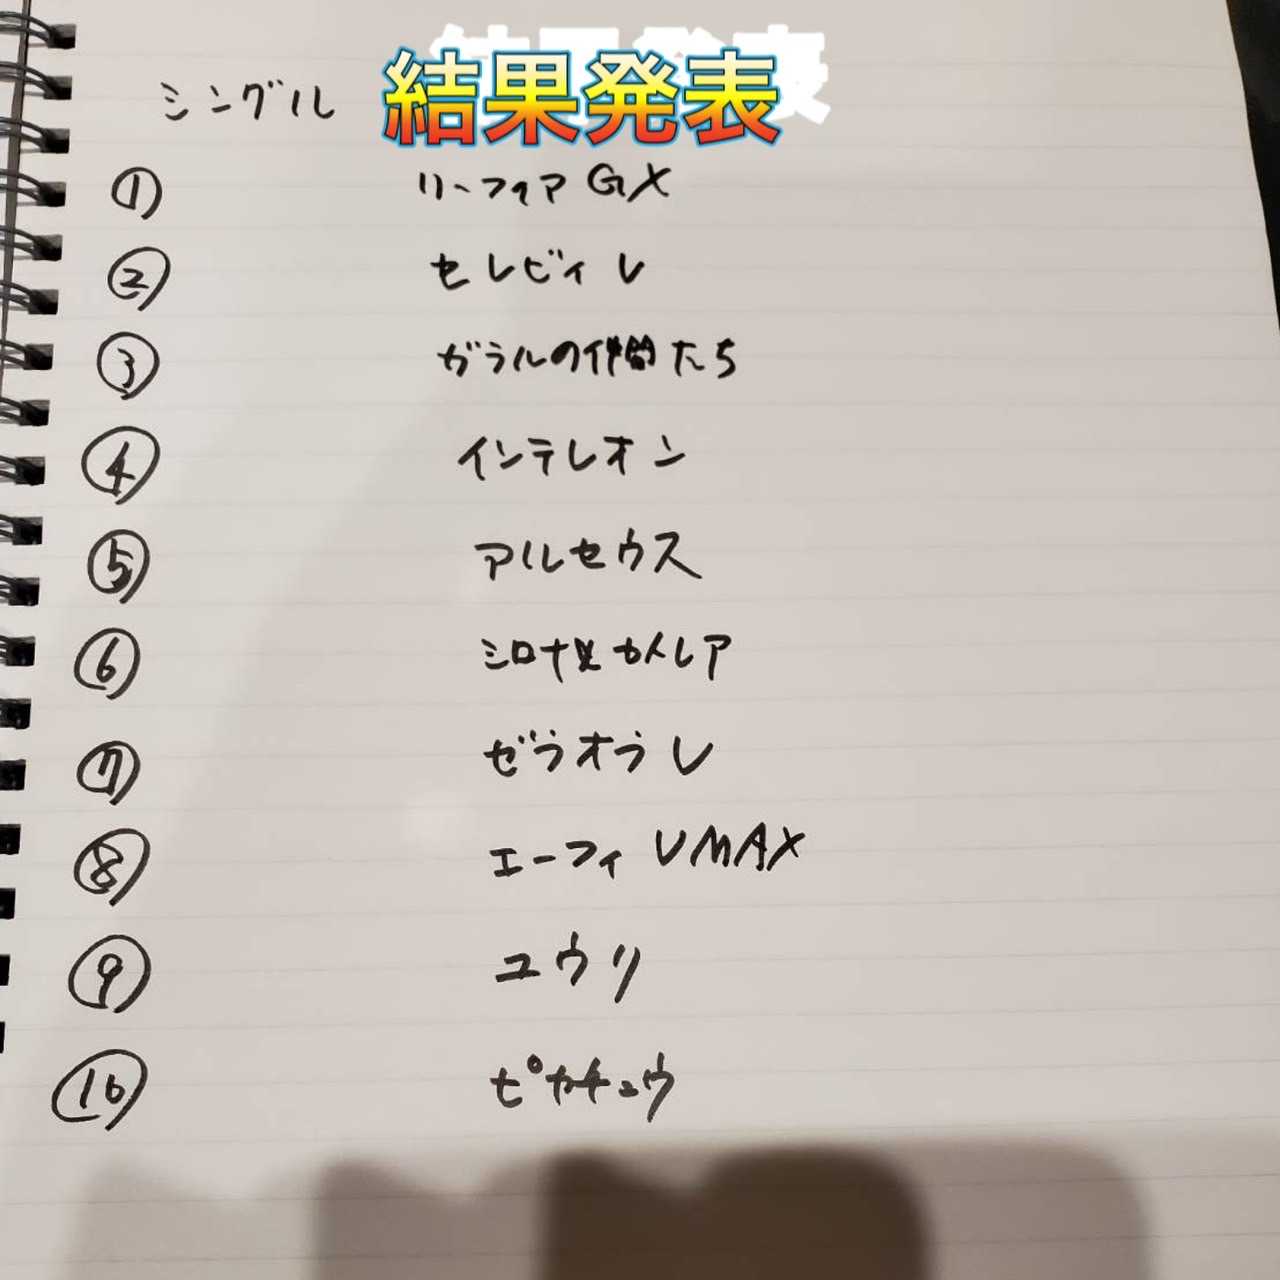 シングル 結果発表
① リーフィアGX
② セレビィV
③ ガラルの仲間たち
④ インテレオン
⑤ アルセウス
⑥ シロナ カトレア
⑦ ゼラオラV
⑧ エーフィVMAX
⑨ ユウリ
⑩ ピカチュウ